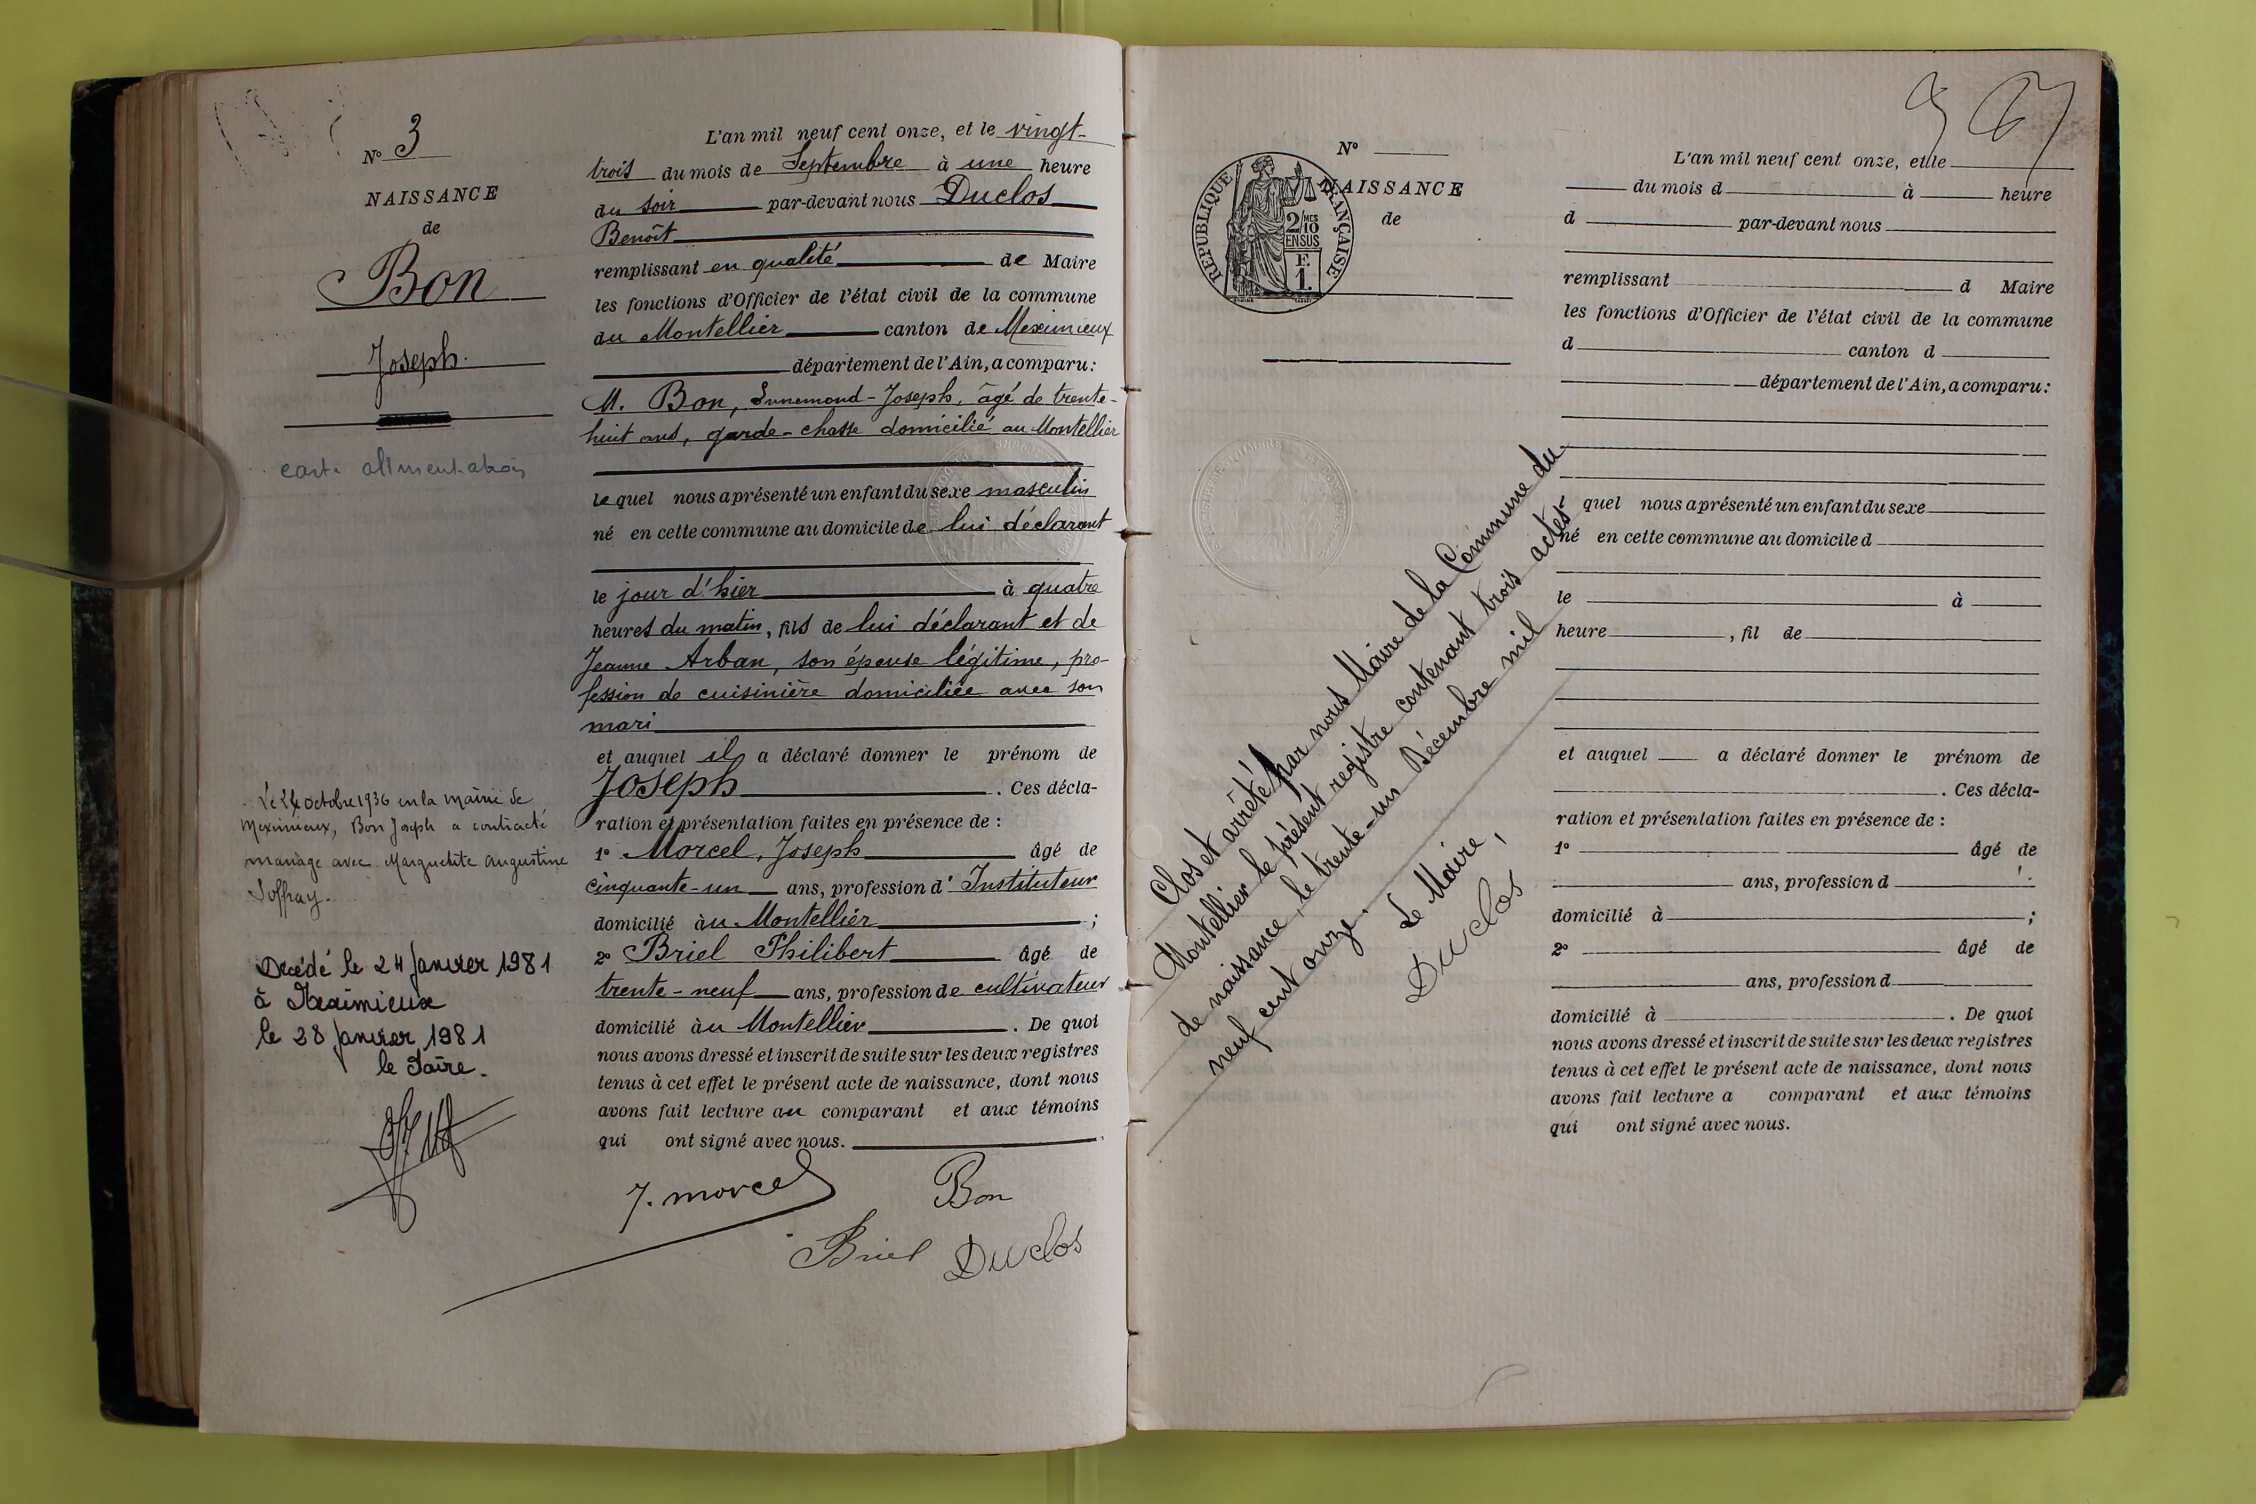 N° 3
NAISSANCE
de
Bon
Joseph.
carte alimentation
Le 24 octobre 1936 en la mairie de
Meximieux, Bon Joseph a contracté
mariage avec Marguerite Augustine
Joffray.
Décédé le 24 Janvier 1981
à Meximieux
le 28 Janvier 1981
le Maire.
L'an mil neuf cent onze, et le vingt-
trois du mois de Septembre à une heure
du soir par-devant nous Duclos
Benoît
remplissant en qualité de Maire
les fonctions d'Officier de l'état civil de la commune
du Montellier canton de Meximieux
département de l'Ain, a comparu:
M. Bon, Ennemond-Joseph, âgé de trente-
huit ans, garde-chasse domicilié au Montellier
lequel nous a présenté un enfant du sexe masculin
né en cette commune au domicile de lui déclarant
le jour d'hier à quatre
heures du matin, fils de lui déclarant et de
Jeanne Arban, son épouse légitime, pro-
fession de cuisinière domiciliée avec son
mari
et auquel il a déclaré donner le prénom de
Joseph. Ces décla-
ration et présentation faites en présence de :
1° Morcel, Joseph âgé de
cinquante-un ans, profession d'Instituteur
domicilié àu Montellier ;
2° Briel Philibert âgé de
trente-neuf ans, profession de cultivateur
domicilié àu Montellier. De quoi
nous avons dressé et inscrit de suite sur les deux registres
tenus à cet effet le présent acte de naissance, dont nous
avons fait lecture au comparant et aux témoins
qui ont signé avec nous.
J. morcel
Bon
Briel Duclos
N°
NAISSANCE
de
REPUBLIQUE FRANÇAISE
2/10 MES
EN SUS
F.
1.
Clos et arrêté par nous Maire de la Commune du
Montellier le présent registre contenant trois actes
de naissance, le trente-un Décembre mil
neuf cent onze.
Le Maire,
Duclos
L'an mil neuf cent onze, et le
du mois d à heure
d par-devant nous
remplissant d Maire
les fonctions d'Officier de l'état civil de la commune
d canton d
département de l'Ain, a comparu:
l quel nous a présenté un enfant du sexe
né en cette commune au domicile d
le à
heure , fil de
et auquel a déclaré donner le prénom de
. Ces décla-
ration et présentation faites en présence de :
1° âgé de
ans, profession d
domicilié à ;
2° âgé de
ans, profession d
domicilié à . De quoi
nous avons dressé et inscrit de suite sur les deux registres
tenus à cet effet le présent acte de naissance, dont nous
avons fait lecture a comparant et aux témoins
qui ont signé avec nous.